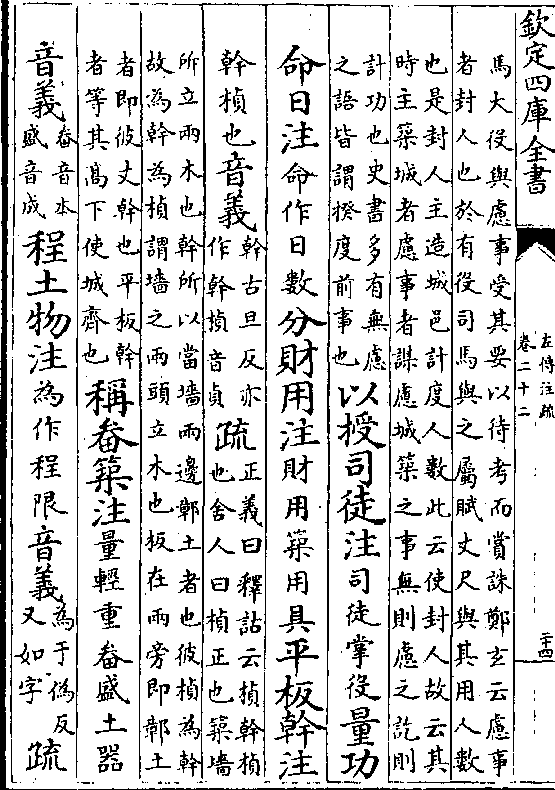 欽定四庫全書
左傳注疏
卷二十二
二十四
馬大役與慮事受其要以待考而賞誅鄭玄云慮事
者封人也於有役司馬與之屬賦丈尺與其用人數
也是封人主造城邑計度人數此云使封人故云其
時主築城者慮事者謀慮城築之事無則慮之訖則
計功也史書多有無慮
之語皆謂揆度前事也
以授司徒注司徒掌役量功
命日注命作日數分財用注財用築用具平板幹注
幹楨也音義
幹古旦反亦
作榦楨音貞
疏
正義曰釋詁云楨榦楨
也舍人曰楨正也築墻
所立兩木也榦所以當墻兩邊鄣土者也彼楨為榦
故為榦為楨謂墻之兩頭立木也板在兩旁即鄣土
者即彼丈榦也平板榦
者等其高下使城齊也
稱畚築注量輕重畚盛土器
音義
畚音本
盛音成
程土物注為作程限音義
為于偽反
又如字
疏